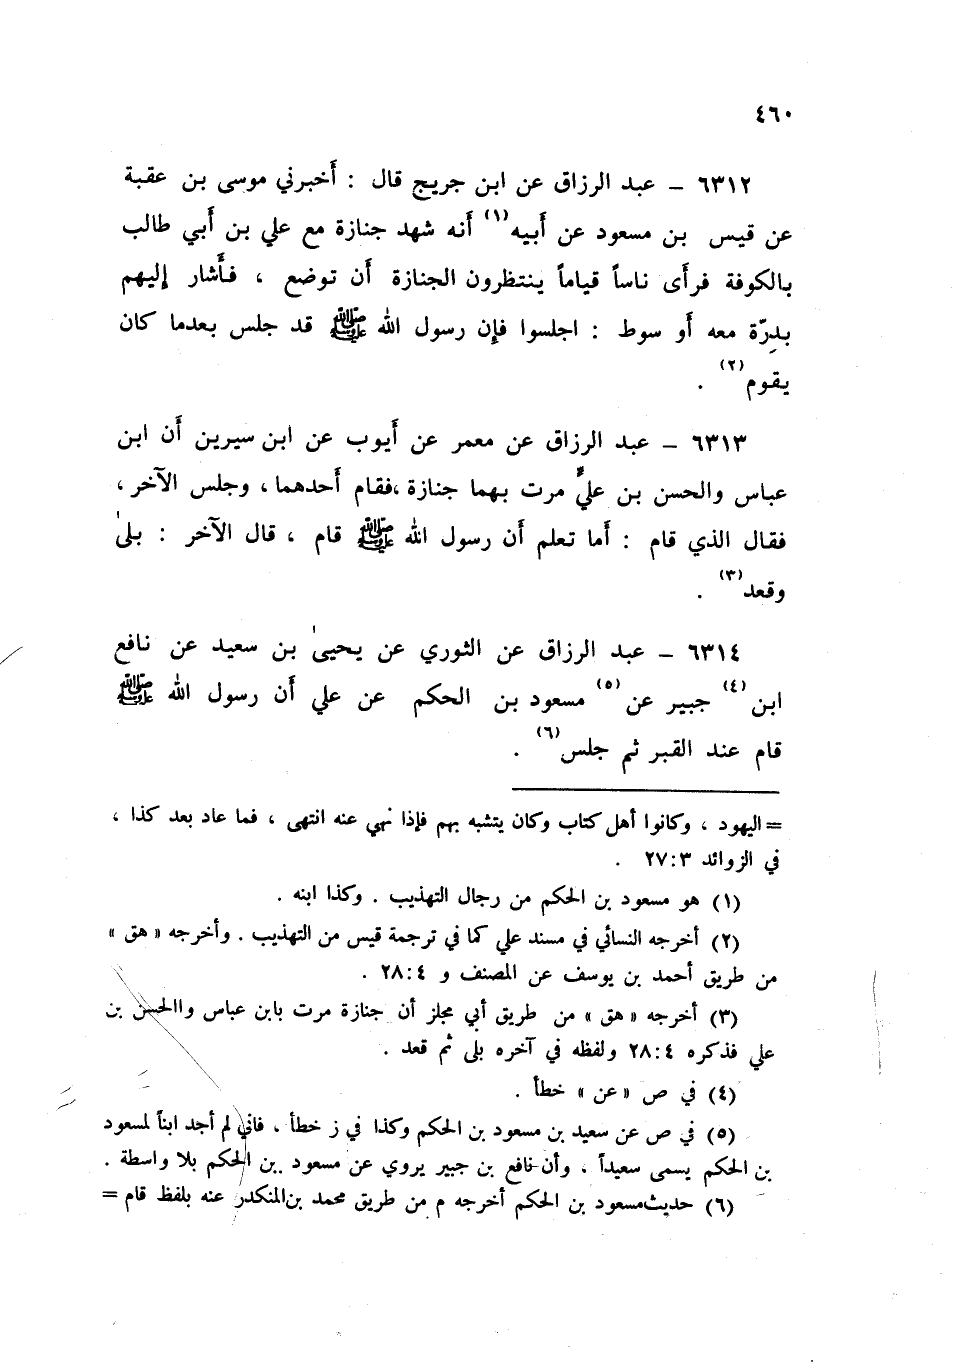 ٤٦٠
٦٣١٢ – عبد الرزاق عن ابن جريج قال : أخبرني موسى بن عقبة
عن قيس بن مسعود عن أبيه(١) أنه شهد جنازة مع علي بن أبي طالب
بالكوفة فرأى ناساً قياماً ينتظرون الجنازة أن توضع ، فأشار إليهم
بدِرّة معه أو سوط : اجلسوا فإن رسول الله ﷺ قد جلس بعدما كان
يقوم(٢) .
٦٣١٣ – عبد الرزاق عن معمر عن أيوب عن ابن سيرين أن ابن
عباس والحسن بن عليٍّ مرت بهما جنازة ،فقام أحدهما ، وجلس الآخر ،
فقال الذي قام : أما تعلم أن رسول الله ﷺ قام ، قال الآخر : بلىٰ
وقعد(٣) .
٦٣١٤ – عبد الرزاق عن الثوري عن يحيىٰ بن سعيد عن نافع
ابن(٤) جبير عن(٥) مسعود بن الحكم عن علي أن رسول الله ﷺ
قام عند القبر ثم جلس(٦) .
= اليهود ، وكانوا أهل كتاب وكان يتشبه بهم فإذا نهي عنه انتهى ، فما عاد بعد كذا ،
في الزوائد ٣:٢٧ .
(١) هو مسعود بن الحكم من رجال التهذيب . وكذا ابنه .
(٢) أخرجه النسائي في مسند علي كما في ترجمة قيس من التهذيب . وأخرجه « هق »
من طريق أحمد بن يوسف عن المصنف و ٤:٢٨ .
(٣) أخرجه « هق » من طريق أبي مجلز أن جنازة مرت بابن عباس واالحسن بن
علي فذكره ٤:٢٨ ولفظه في آخره بلى ثم قعد .
(٤) في ص « عن » خطأ .
(٥) في ص عن سعيد بن مسعود بن الحكم وكذا في ز خطأ ، فاني لم أجد ابناً لمسعود
بن الحكم يسمى سعيداً ، وأن نافع بن جبير يروي عن مسعود بن الحكم بلا واسطة .
(٦) حديث مسعود بن الحكم أخرجه م من طريق محمد بن المنكدر عنه بلفظ قام =